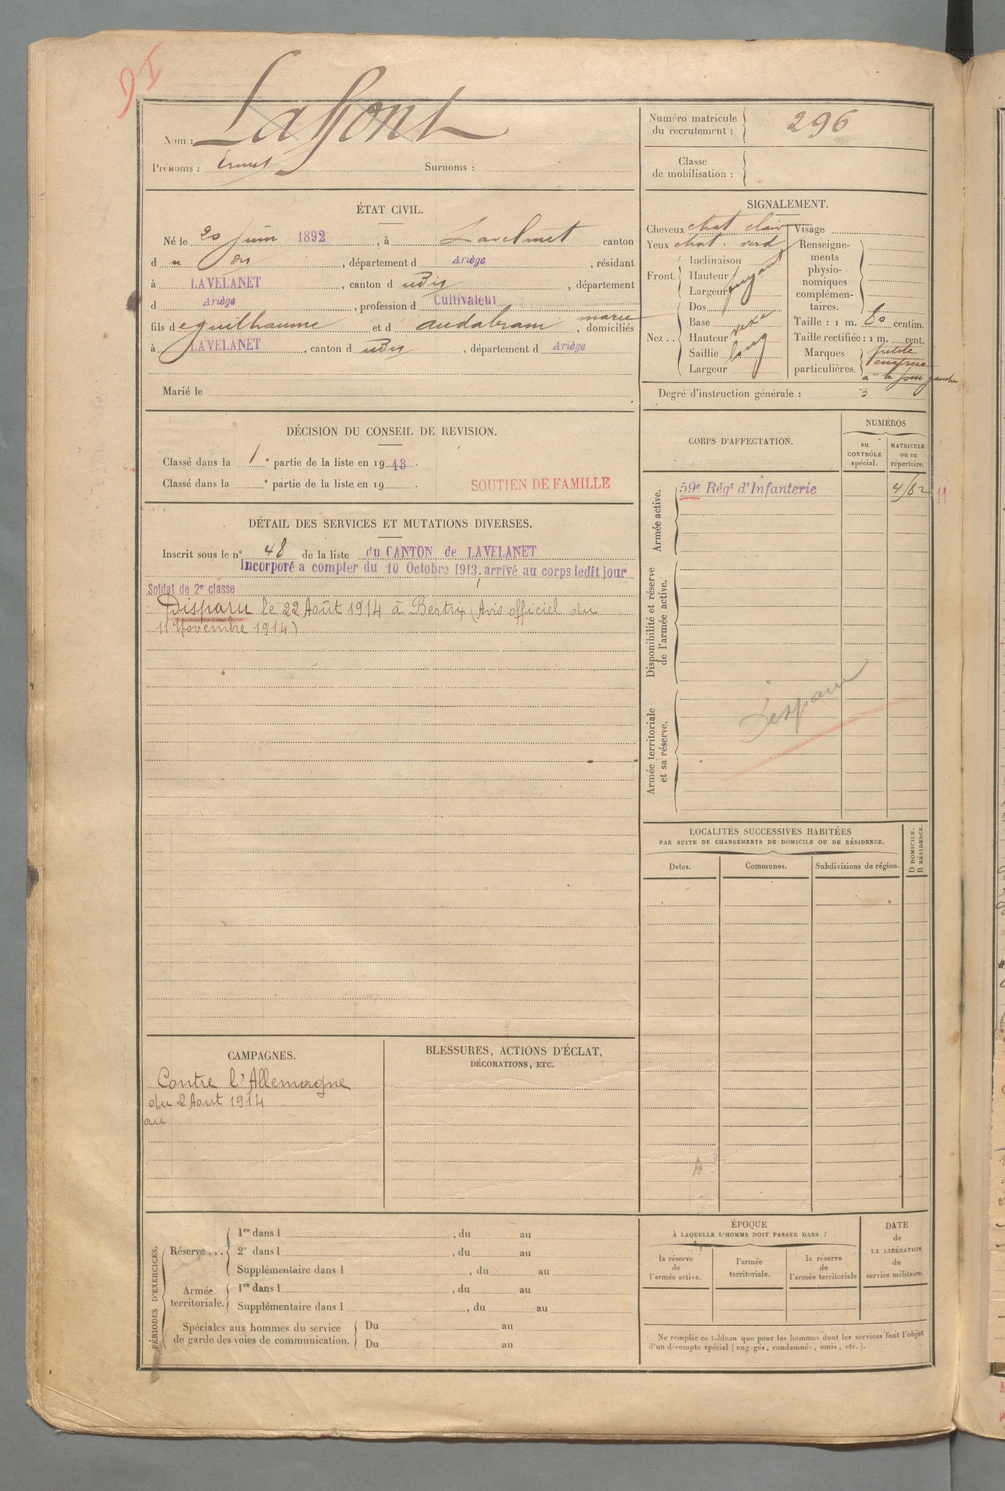 Nom : Laffont
Prénoms : Ernest Surnoms :
Numéro matricule
du recrutement : 296
Classe
de mobilisation :
ÉTAT CIVIL.
Né le 20 juin 1892, à Lavelanet canton
d u dit, département d Ariège, résidant
à LAVELANET, canton d udit, département
d Ariège, profession d Cultivateur
fils de guilhaume et de audabram marie, domiciliés
à LAVELANET, canton d udit, département d Ariège
Marié le
SIGNALEMENT.
Cheveux chat clair
Yeux chat. verd
Front. Inclinaison
Hauteur fuyant
Largeur
Nez .. Dos
Base vexe
Hauteur
Saillie long
Largeur
Visage
Renseigne-
ments
physio-
nomiques
complémen-
taires.
Taille : 1 m. 60 centim.
Taille rectifiée : 1 m. cent.
Marques petite
particulières. à la joue gauche
Degré d'instruction générale : 3
DÉCISION DU CONSEIL DE REVISION.
Classé dans la 1e partie de la liste en 1913.
Classé dans la e partie de la liste en 19 .
SOUTIEN DE FAMILLE
DÉTAIL DES SERVICES ET MUTATIONS DIVERSES.
Inscrit sous le n° 48 de la liste du CANTON de LAVELANET
Incorporé a compter du 10 Octobre 1913, arrivé au corps ledit jour
Soldat de 2e classe
Disparu le 22 Août 1914 à Bertrix (Avis officiel du
11 Novembre 1914)
CORPS D'AFFECTATION.
NUMÉROS
au
CONTRÔLE
spécial.
MATRICULE
ou au
répertoire.
Armée active.
59e Régt d'Infanterie
Disponibilité et réserve
de l'armée active.
Armée territoriale
et sa réserve.
Disparu
LOCALITÉS SUCCESSIVES HABITÉES
PAR SUITE DE CHANGEMENTS DE DOMICILE OU DE RÉSIDENCE.
Dates. Communes. Subdivisions de région.
D DOMICILE.
R RÉSIDENCE.
CAMPAGNES.
Contre l'Allemagne
du 2 Aout 1914
au
BLESSURES, ACTIONS D'ÉCLAT,
DÉCORATIONS, ETC.
PÉRIODES D'EXERCICES.
Réserve... 1re dans l , du au
2e dans l , du au
Supplémentaire dans l , du au
Armée
territoriale. 1re dans l , du au
Supplémentaire dans l , du au
Spéciales aux hommes du service
de garde des voies de communication. Du au
Du au
ÉPOQUE
À LAQUELLE L'HOMME DOIT PASSER DANS :
la réserve
de
l'armée active.
l'armée
territoriale.
la réserve
de
l'armée territoriale
DATE
de
LA LIBÉRATION
du
service militaire.
Ne remplir ce tableau que pour les hommes dont les services font l'objet
d'un décompte spécial (engagés, condamnés, omis, etc.).